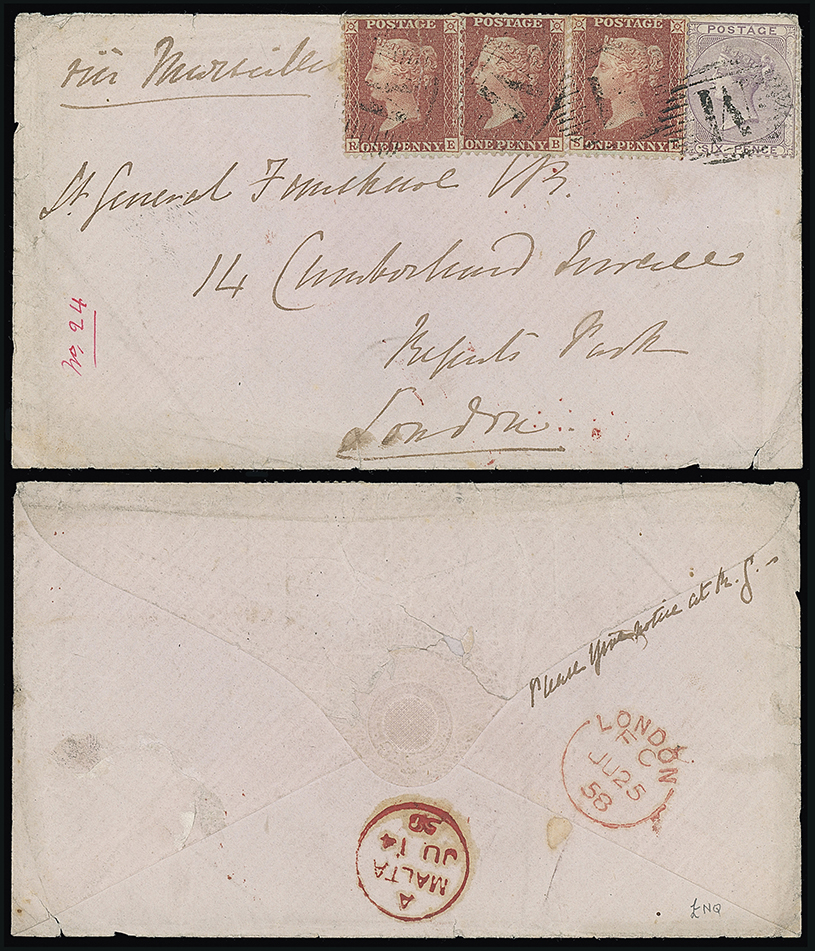 viâ Marseilles
POSTAGE POSTAGE POSTAGE POSTAGE
R ONE PENNY E ONE PENNY B S ONE PENNY SIX PENCE
M
Lt General
14 Cumberland Terrace
Regents Park
London
No 24
Please give notice at
LONDON
F C
JU 25
58
A
MALTA
JU 14
58
£NQ